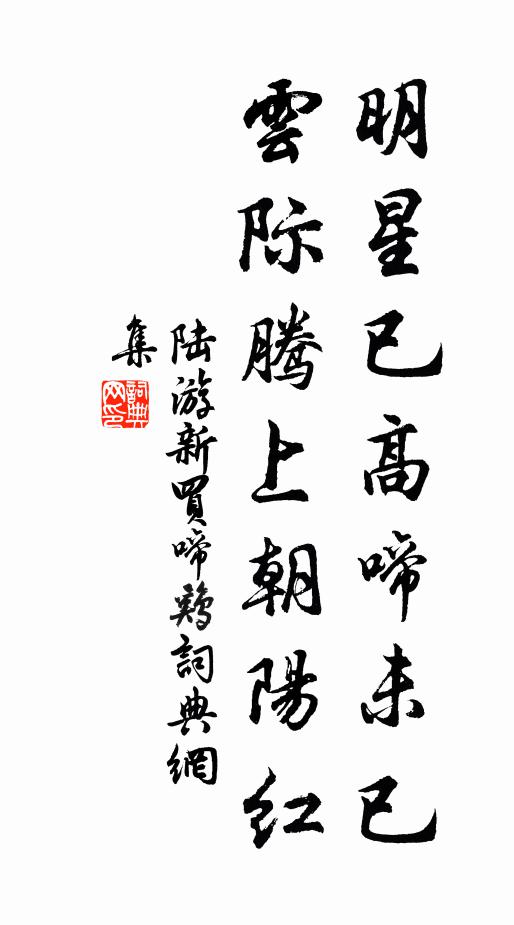 明星已高啼未已
雲际腾上朝陽红
陆游新買啼鷄詞典網
集
詞典
网印